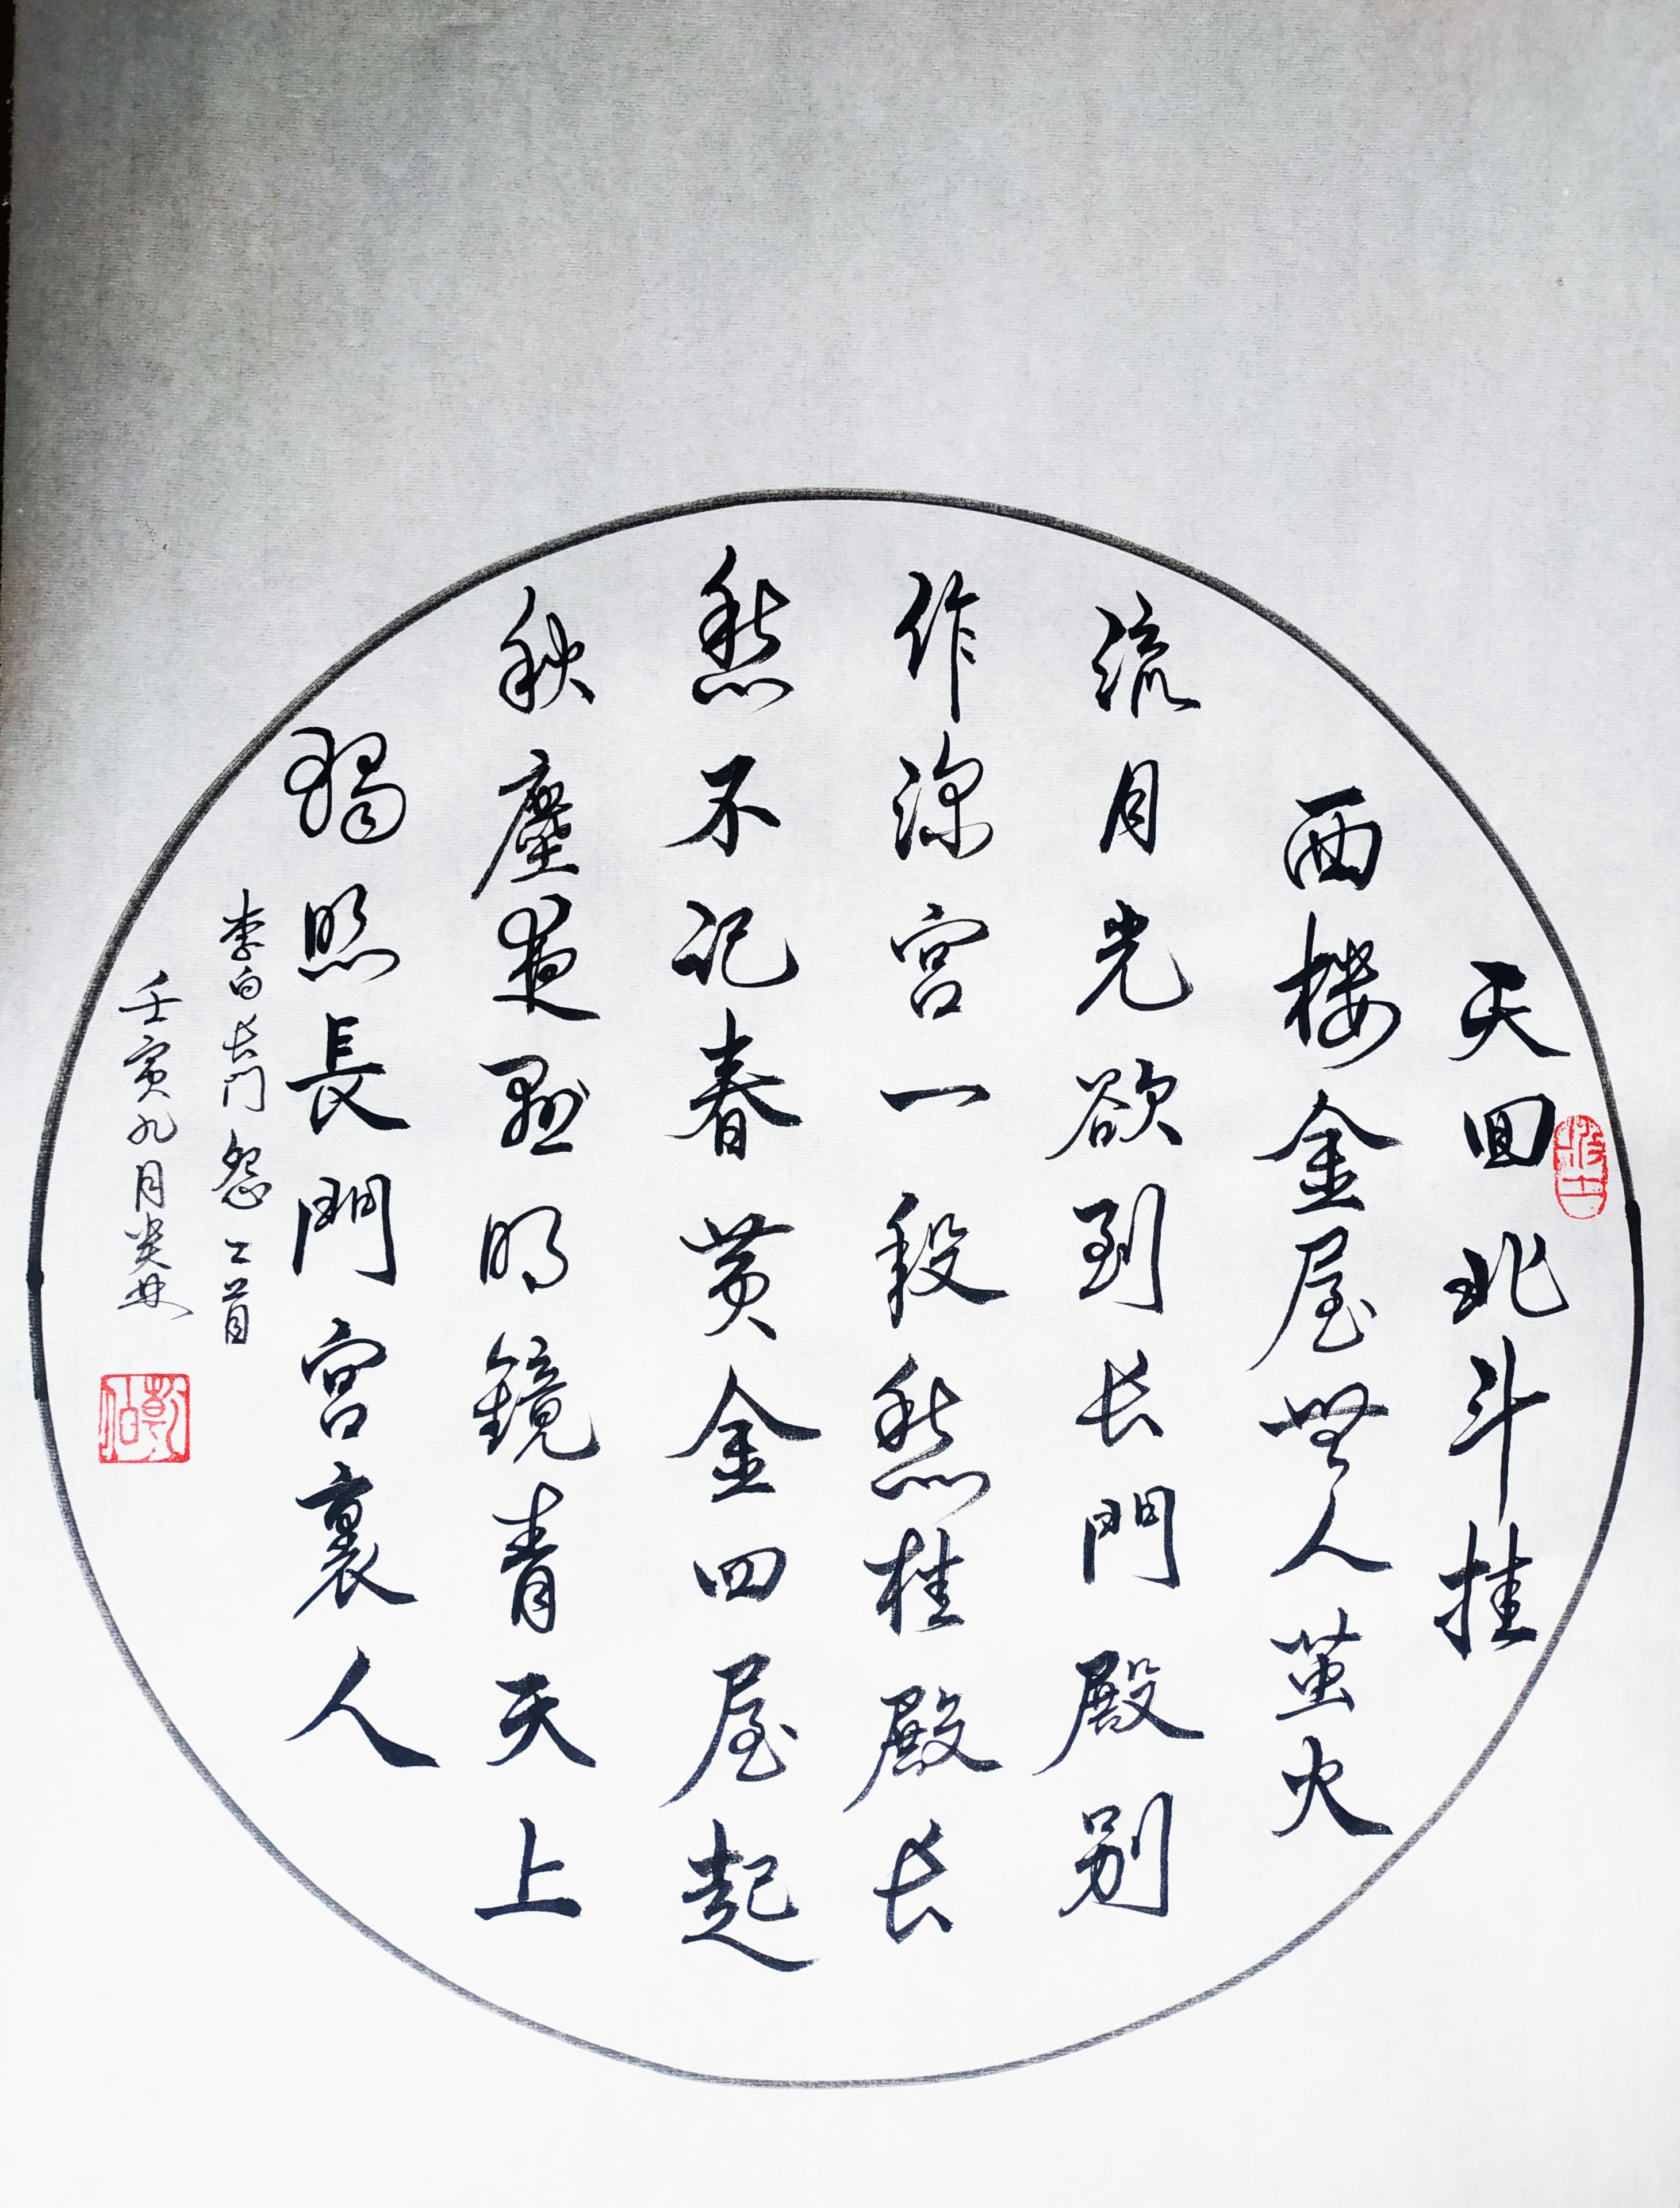 天回北斗挂
西樓金屋無人萤火
流月光欲到长門殿别
作深宫一段愁桂殿长
愁不记春黄金四屋起
秋塵夜懸明鏡青天上
獨照長門宫裏人
李白长門怨二首
壬寅九月